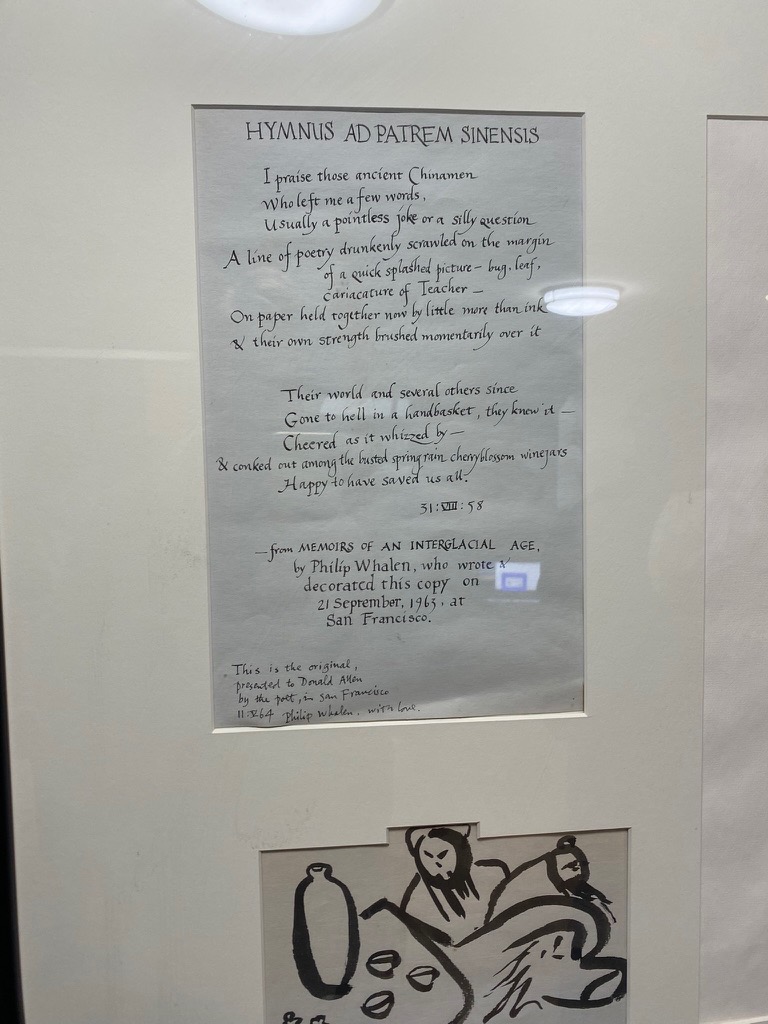 HYMNUS AD PATREM SINENSIS
I praise those ancient Chinamen
Who left me a few words,
Usually a pointless joke or a silly question
A line of poetry drunkenly scrawled on the margin
of a quick splashed picture — bug, leaf,
cariacature of Teacher —
On paper held together now by little more than ink
& their own strength brushed momentarily over it
Their world and several others since
Gone to hell in a handbasket, they knew it —
Cheered as it whizzed by —
& conked out among the busted spring rain cherryblossom winejars
Happy to have saved us all.
31:VIII:58
— from MEMOIRS OF AN INTERGLACIAL AGE,
by Philip Whalen, who wrote &
decorated this copy on
21 September, 1963, at
San Francisco.
This is the original,
presented to Donald Allen
by the poet, in San Francisco
11:V:64 Philip Whalen. with love.